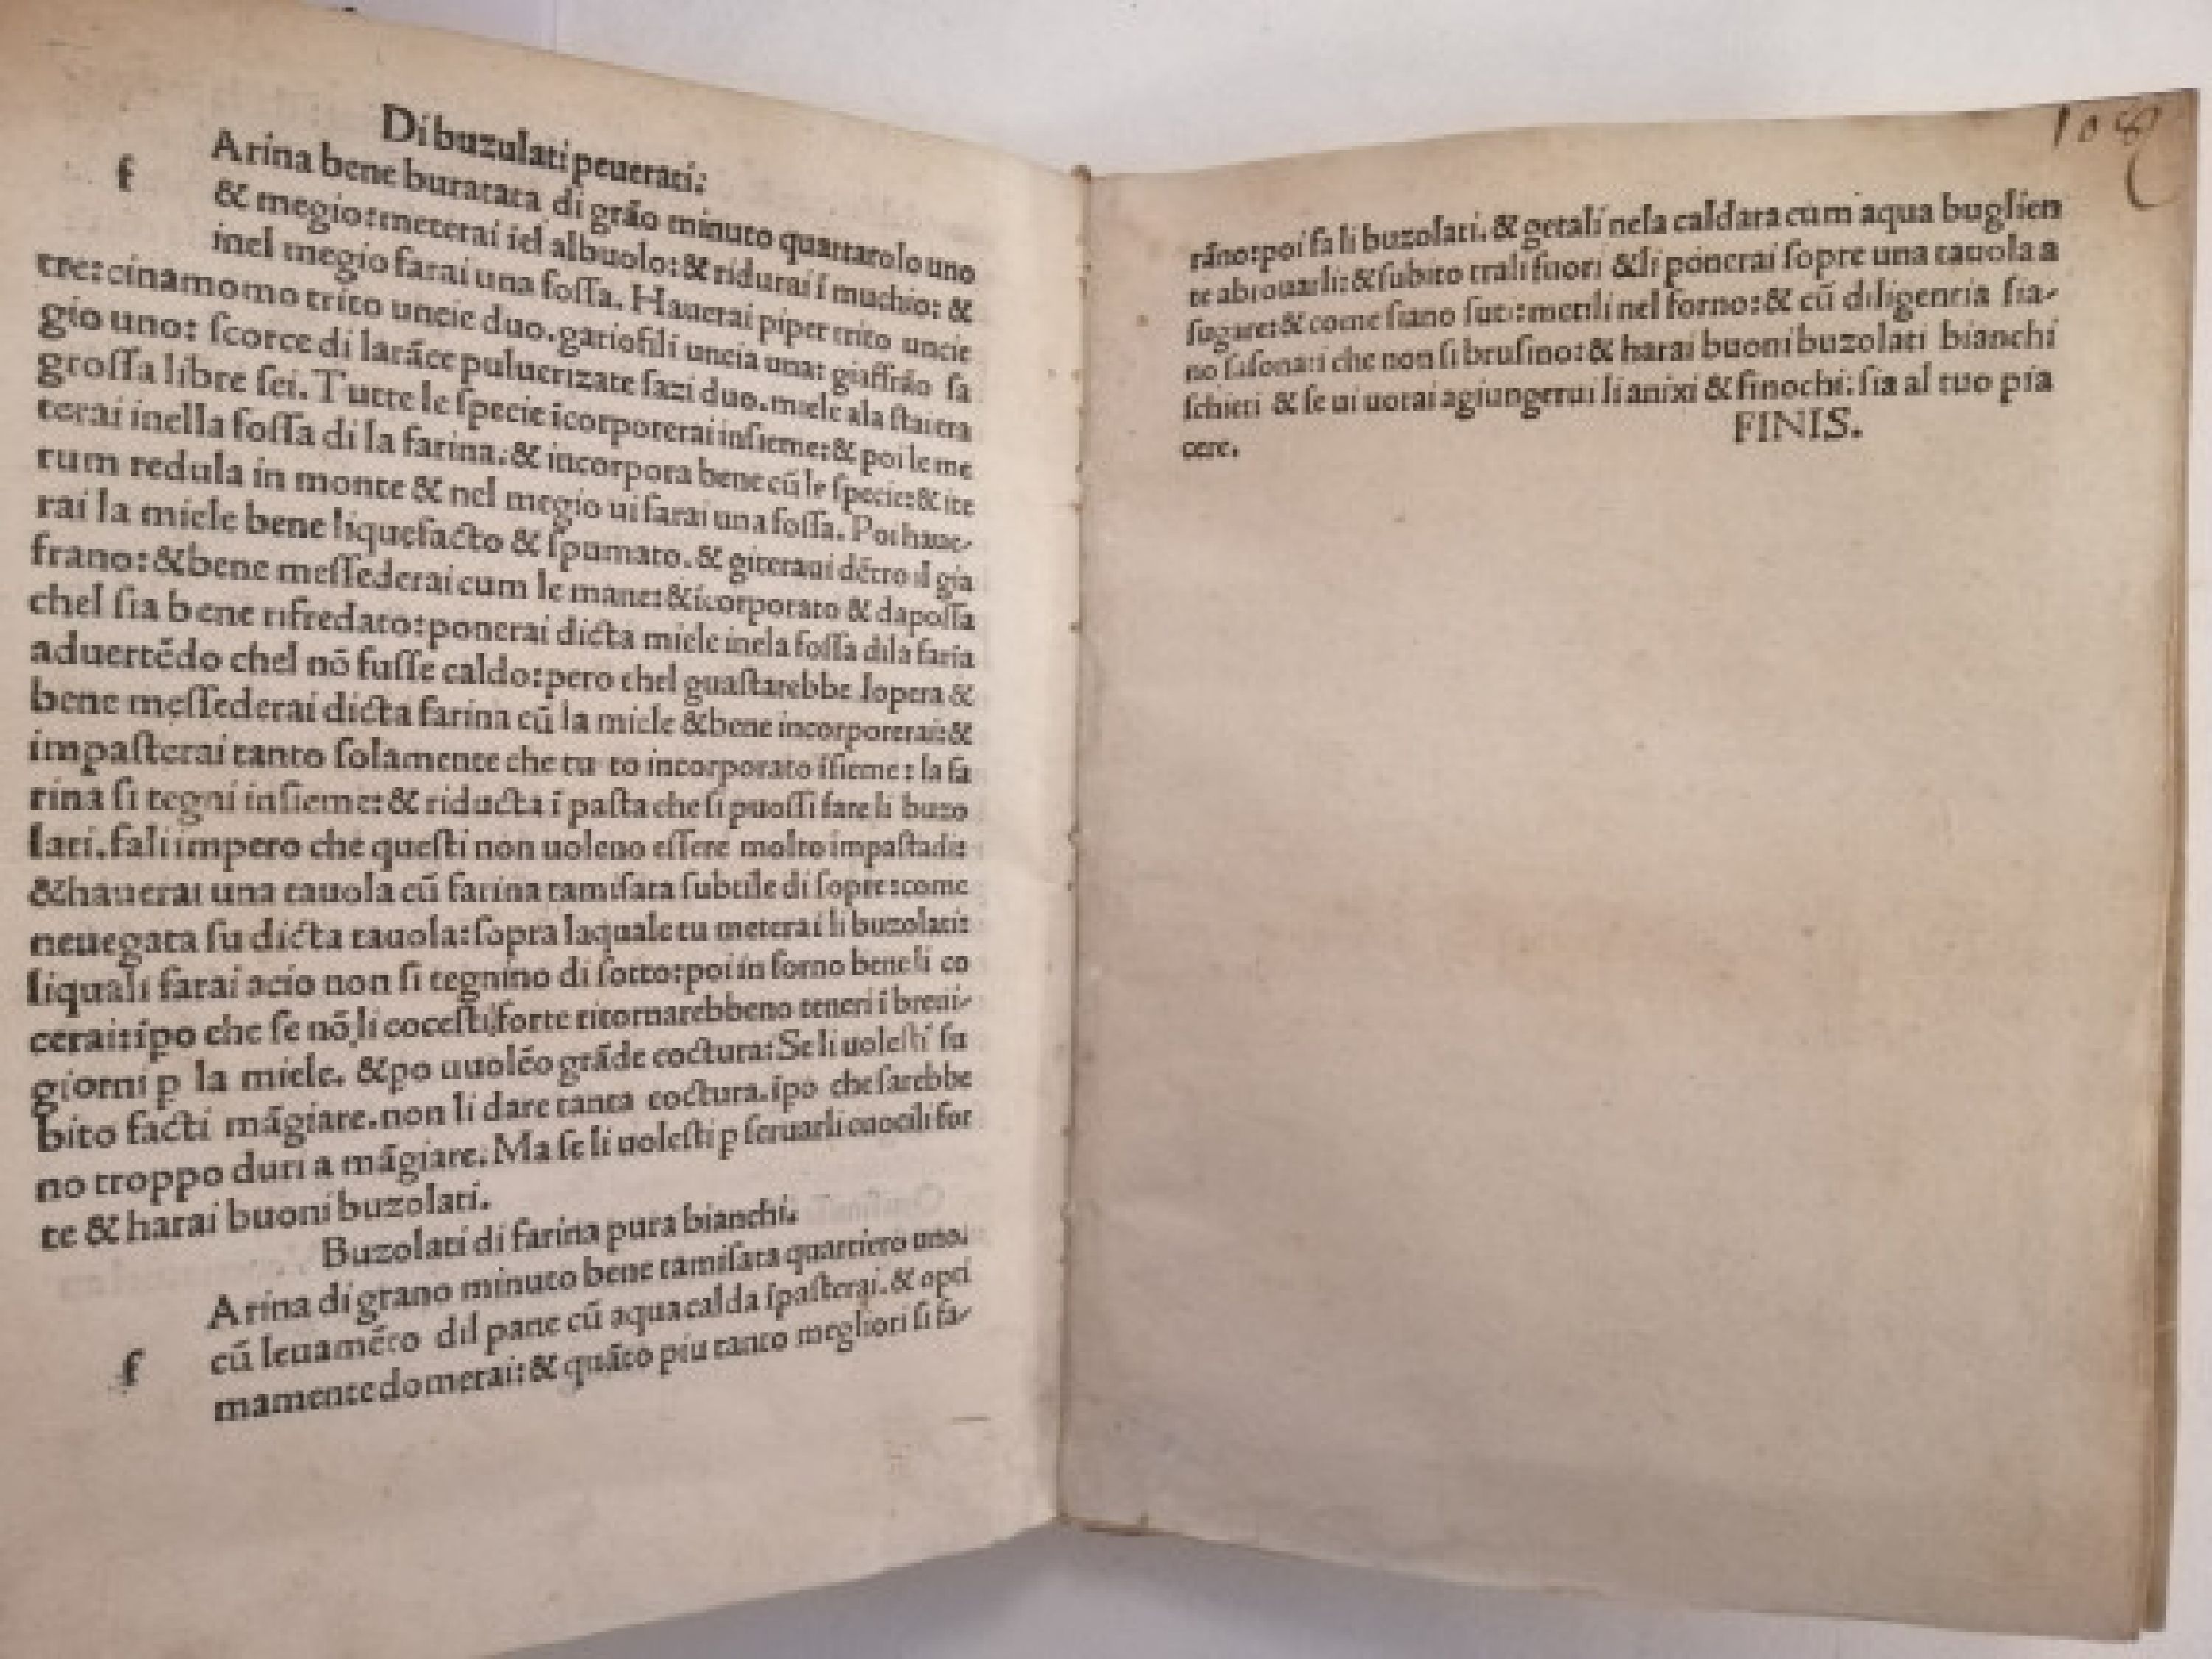 Di buzulati peuerati:
f
Arina bene buratata di grāo minuto quartarolo uno
& megio: meterai iel albuolo: & ridurai ī muchio: &
inel megio farai una foſſa. Hauerai piper trito uncie
tre: cinamomo trito uncie duo. gariofili uncia una: giaffrāo ſa
gio uno: ſcorce di larāce puluerizate ſazi duo. miele ala ſtaiera
groſſa libre ſei. Tutte le ſpecie īcorporerai inſieme: & poi le me
terai inella foſſa di la farina: & incorpora bene cū le ſpecie: & ite
rum redula in monte & nel megio ui farai una foſſa. Poi haue-
rai la miele bene liquefacto & ſpumato. & giteraui dētro il gia
frano: & bene meſſederai cum le mane: & īcorporato & dapoſſa
chel ſia bene rifredato: ponerai dicta miele inela foſſa dila faria
aduertēdo chel nō fuſſe caldo: pero chel guaſtarebbe lopera &
bene meſſederai dicta farina cū la miele & bene incorporerai: &
impaſterai tanto ſolamente che tu to incorporato iſieme: la fa
rina ſi tegni inſieme: & riducta ī paſta che ſi puoſſi fare li buzo
lati. fali impero che queſti non uoleno eſſere molto impaſtadi:
& hauerai una tauola cū farina tamiſata ſubtile di ſopre: come
neuegata ſu dicta tauola: ſopra laquale tu meterai li buzolati:
liquali farai acio non ſi tegnino di ſotto: poi in forno bene li co
cerai: īpo che ſe nō li coceſti forte ritornarebbeno teneri ī breui-
giorni p la miele. & po uuolēo grāde coctura: Se li uoleſti ſu
bito facti māgiare. non li dare tanta coctura. īpo che ſarebbe
no troppo duri a māgiare. Ma ſe li uoleſti p ſeruarli cuocili for
te & harai buoni buzolati.
Buzolati di farina pura bianchi.
f
Arina di grano minuto bene tamiſata quartiero uno:
cū leuamēto dil pane cū aqua calda īpaſterai. & opti
mamente domerai: & quāto piu tanto megliori ſi fa-
108
rāno: poi fa li buzolati. & getali nela caldara cum aqua buglien
te abrouarli: & ſubito trali fuori & li ponerai ſopre una tauola a
ſugare: & come ſiano ſuti: metili nel forno: & cū diligentia ſia-
no ſaſonati che non ſi bruſino: & harai buoni buzolati bianchi
ſchieti & ſe ui uorai agiungerui li anixi & finochi: ſia al tuo pia
cere.
FINIS.